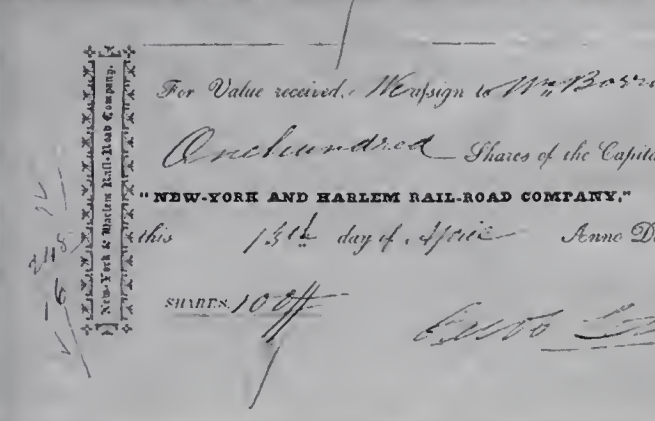 New-York & Harlem Rail-Road Company.
For Value received, We assign to Wm
One hundred Shares of the Capita
"NEW-YORK AND HARLEM RAIL-ROAD COMPANY,"
this 13th day of April Anno D
SHARES, 100